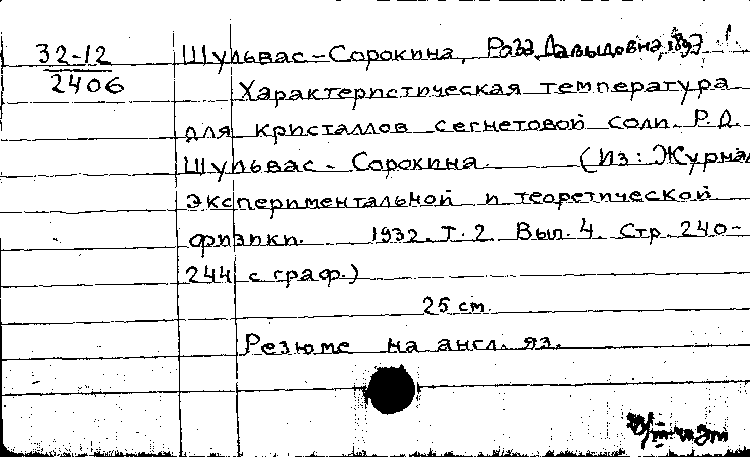 32-12
2406
Шульвас-Сорокина, Раза Давыдовна, 1893
Характеристическая температура
для кристаллов сегнетовой соли. Р.Д.
Шульвас-Сорокина (Из: Журнал
экспериментальной и теоретической
физики. 1932. Т. 2. Вып. 4. Стр. 240-
244 с граф.)
25 cm.
Резюме на англ. яз.